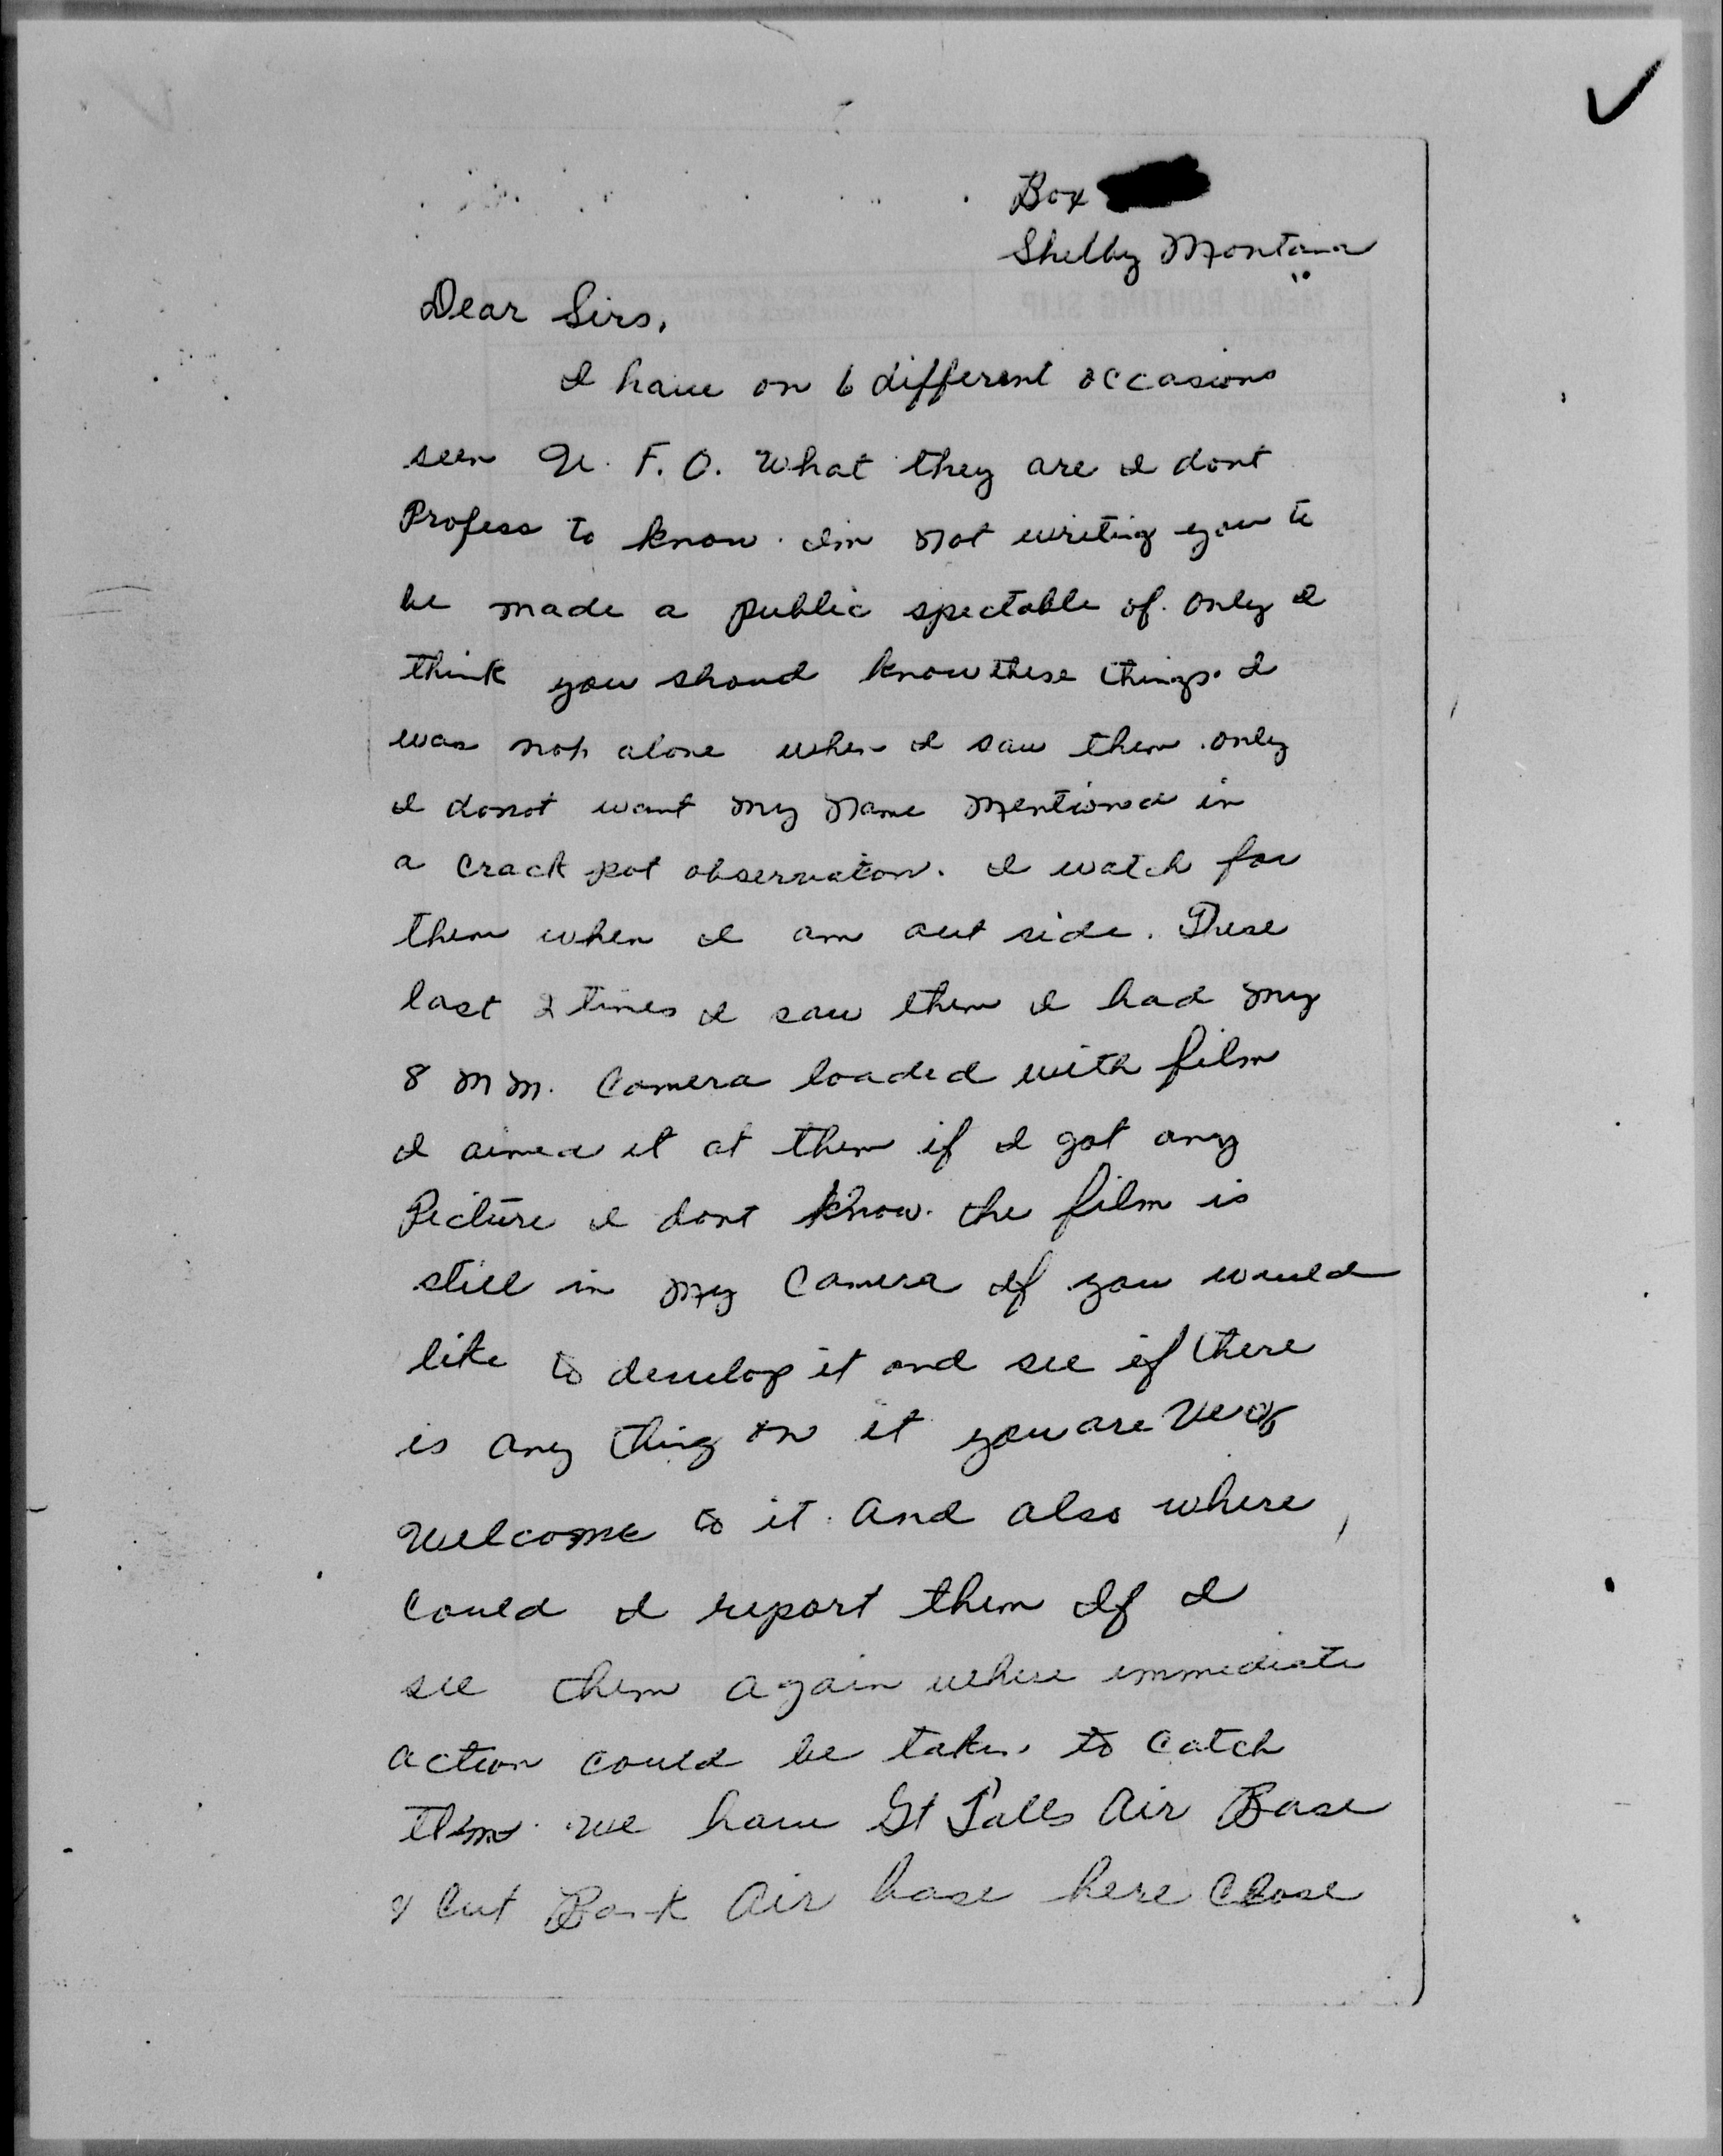 Box
Shelby Montana
Dear Sirs,
I have on 6 different occasions
seen U. F. O. What they are I dont
Profess to know. Im not writing you to
be made a public spectable of. only I
think you shoud know these things. I
was not alone when I saw them. only
I donot want my name mentioned in
a crack pot observation. I watch for
them when I am out side. These
last 2 times I saw them I had my
8 mm. Camera loaded with film
I aimed it at them if I got any
Picture I dont know. the film is
still in my Camera If you would
like to develop it and see if there
is any thing on it you are
Welcome to it. and also where
could I report them If I
see them again where immediate
action could be taken to catch
them. we have Gt Falls Air Base
& Cut Bank Air base here close